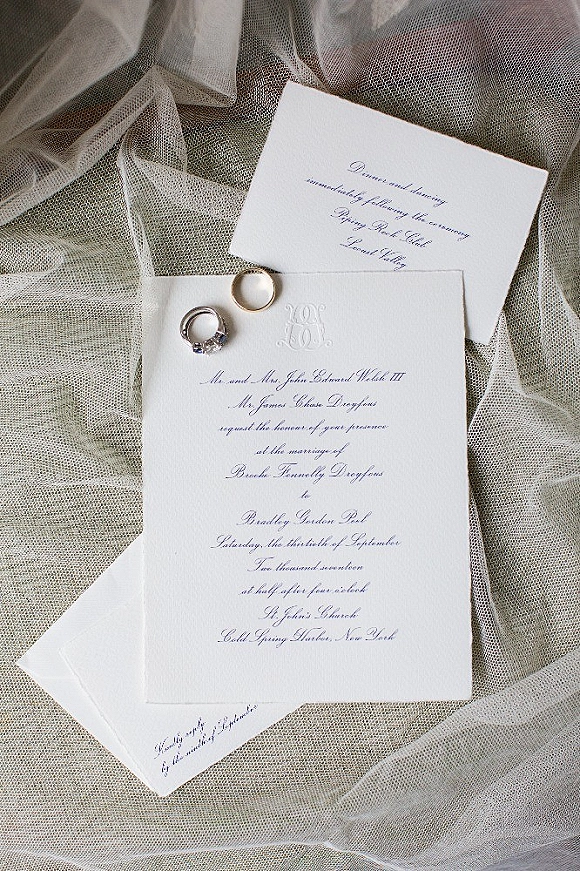 Dinner and dancing
immediately following the ceremony
Piping Rock Club
Locust Valley
Mr. and Mrs. John Edward Welsh III
Mr. James Chase Dreyfous
request the honour of your presence
at the marriage of
Brooke Fennelly Dreyfous
to
Bradley Gordon Peel
Saturday, the thirtieth of September
Two thousand seventeen
at half after four o'clock
St. John's Church
Cold Spring Harbor, New York
Kindly reply
by the ninth of September